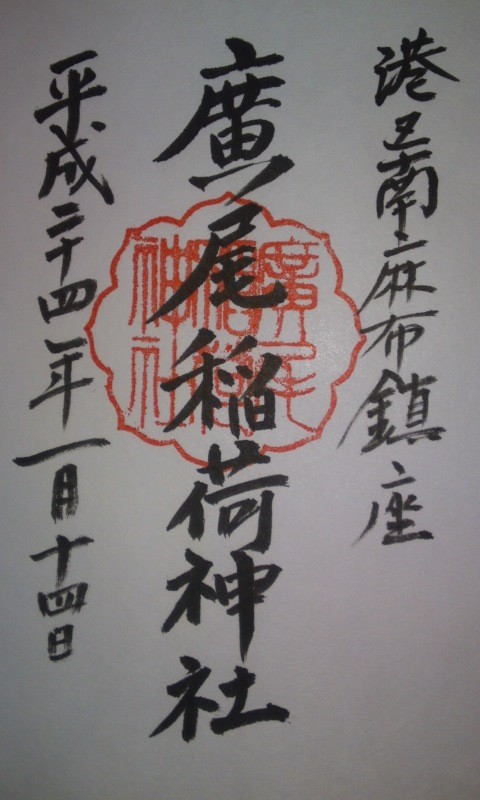 港区南麻布鎮座
廣尾稲荷神社
平成二十四年一月十四日